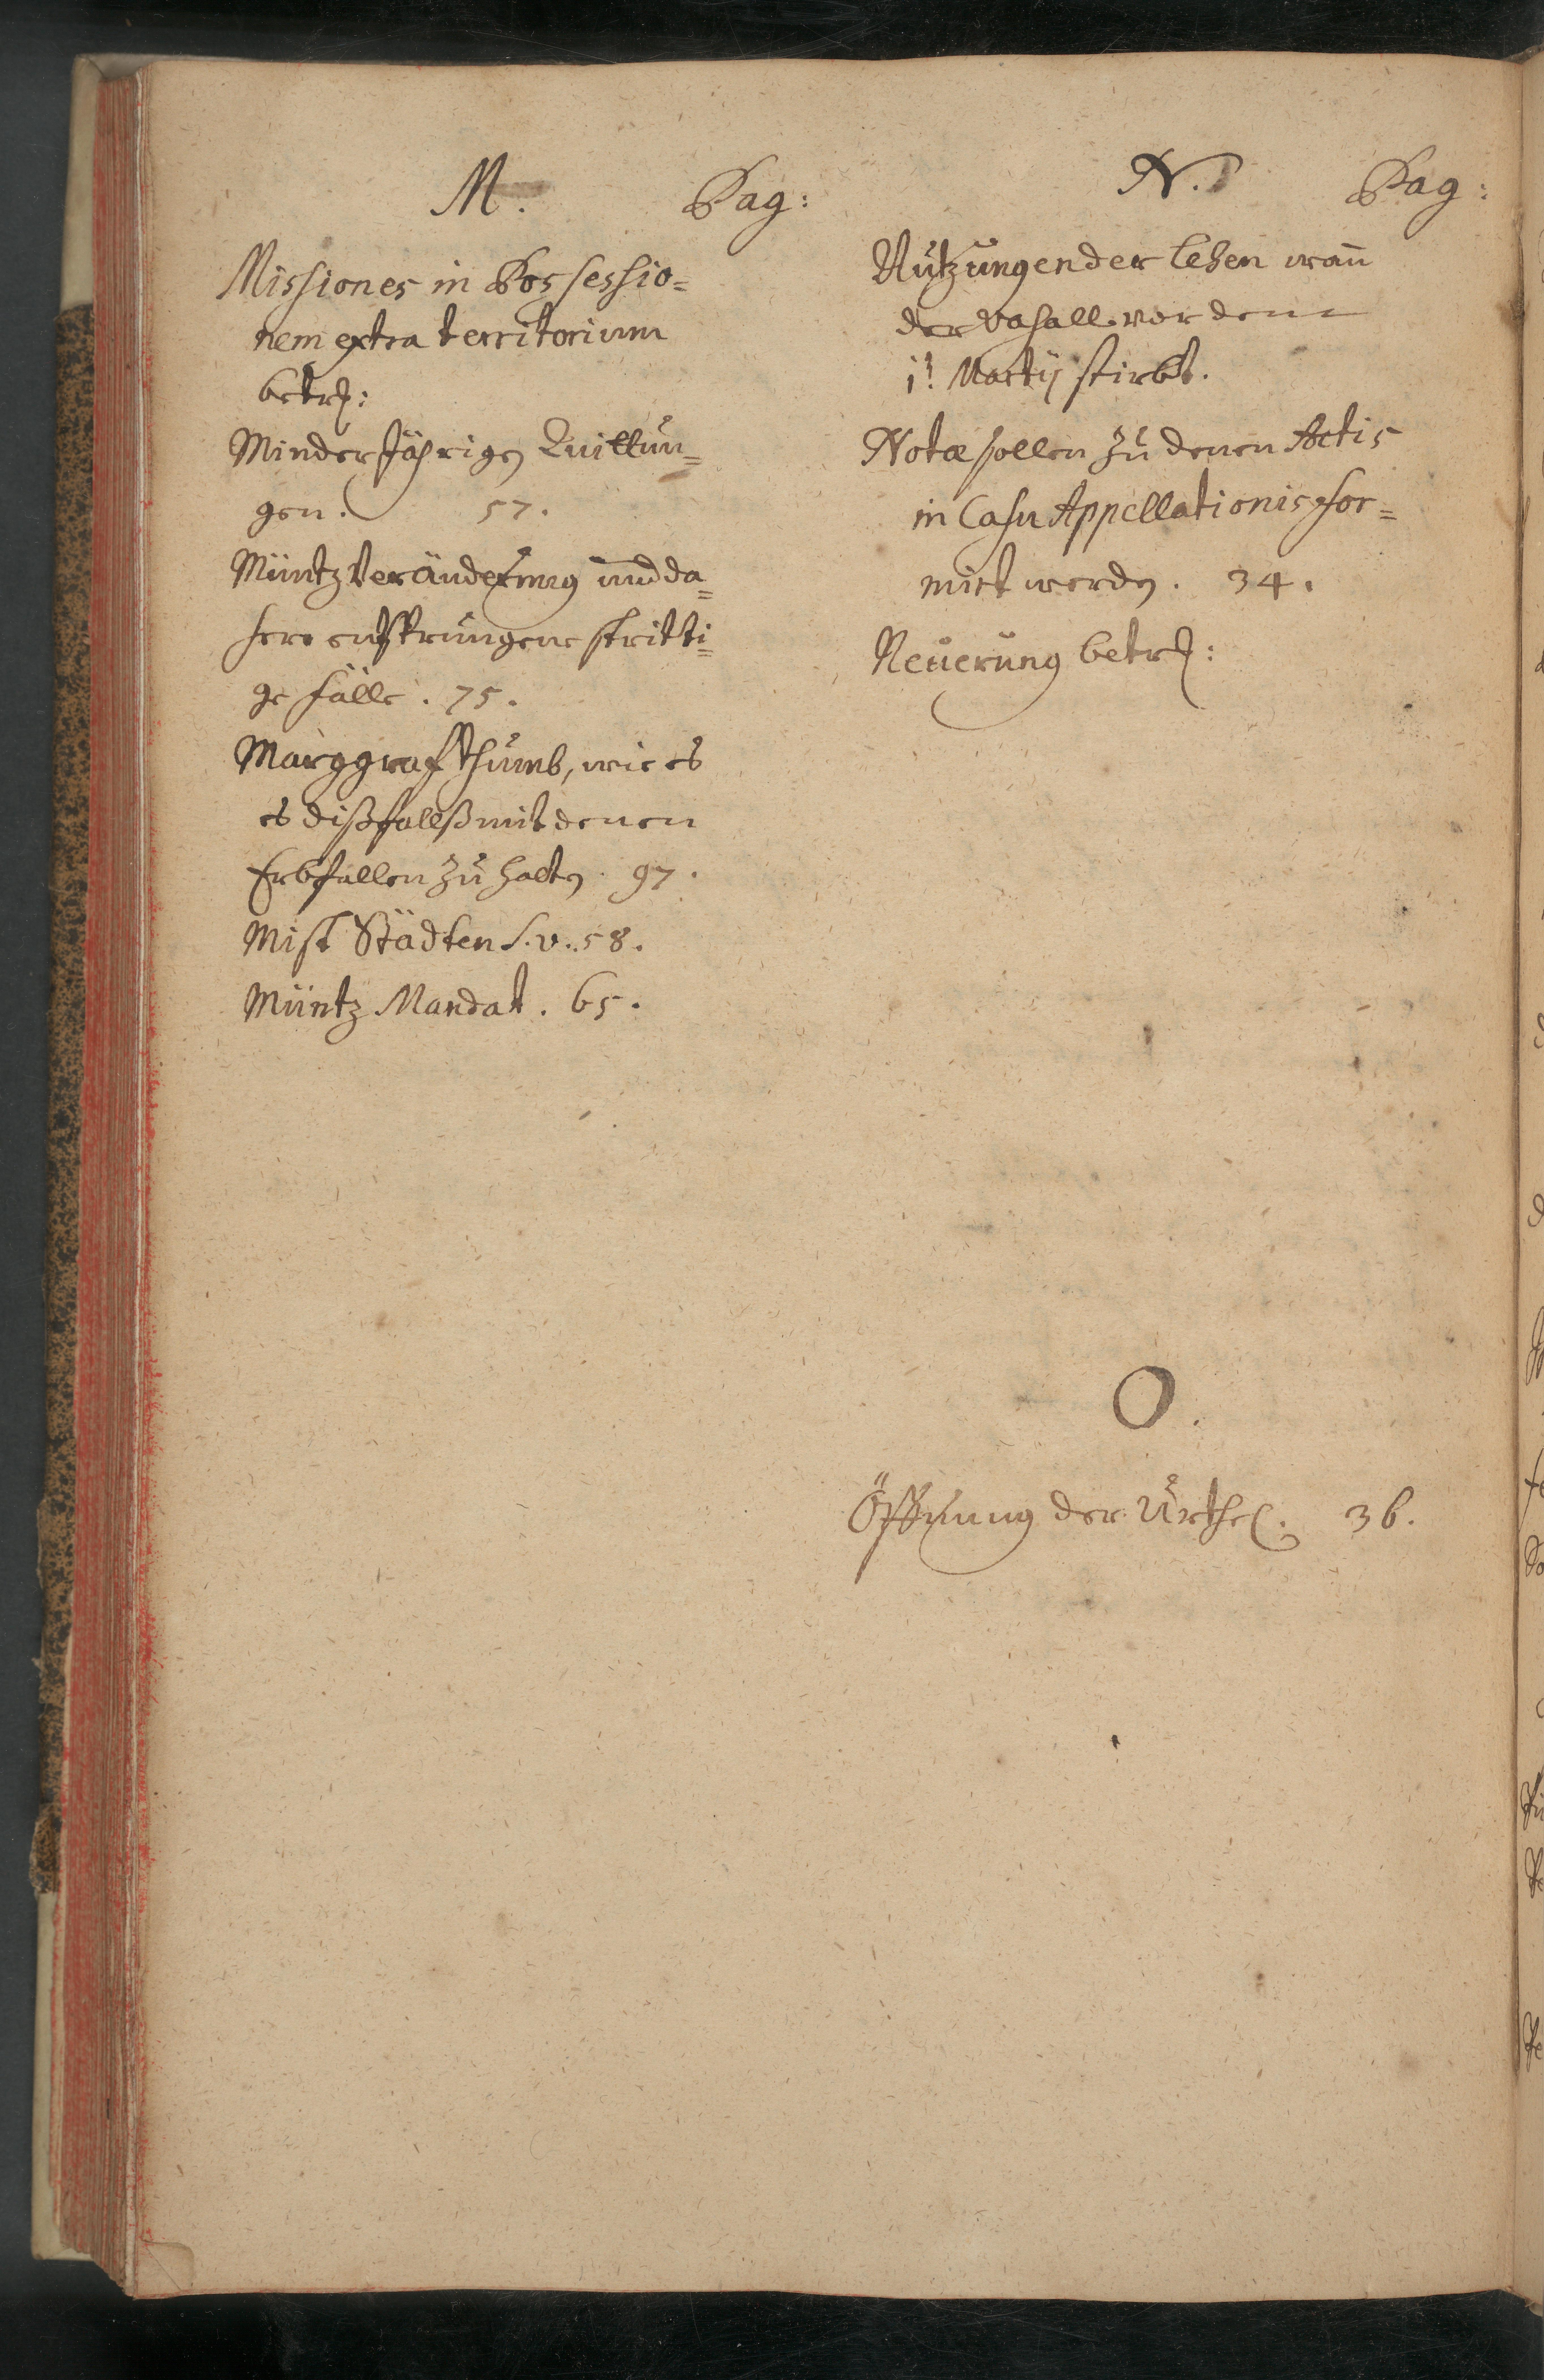 M. Pag:
Missiones in Possessio=
nem extra territorium
betr:
Minderjährigen Quittun=
gen. 57.
Müntz Veränderung und da=
hero entsprungene stritti=
ge fälle. 75.
Marggrafthumb, wie es
es dißfallß mit denen
Erbfällen zu halten. 97.
Mist Städten s.v. 58.
Müntz Mandat. 65.
N. Pag:
Nutzungen der Lehen wan̄
der Vasall vor dem
1t Martij stirbt.
Notæ sollen zu denen Actis
in Casu Appellationis for=
mirt werden. 34.
Neuerung betr:
O.
Öffnung der Urthel. 36.